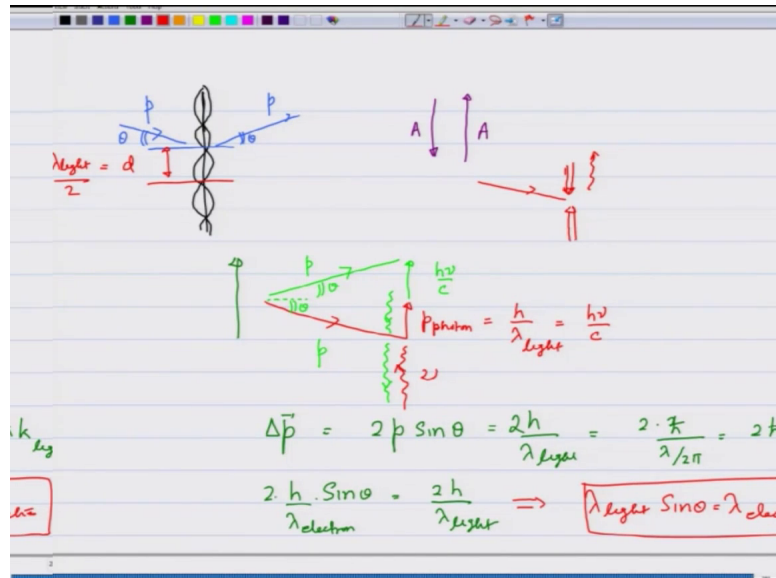 p p
θ θ
λlight/2 = d
A A
p
θ θ
hν/c
p photon = h/λlight = hν/c
p
ν
k
Δp⃗ = 2 p Sin θ = 2h/λlight = 2·ħ/(λ/2π) = 2ħ
2·h/λelectron · Sinθ = 2h/λlight ⇒ λlight Sinθ = λelec